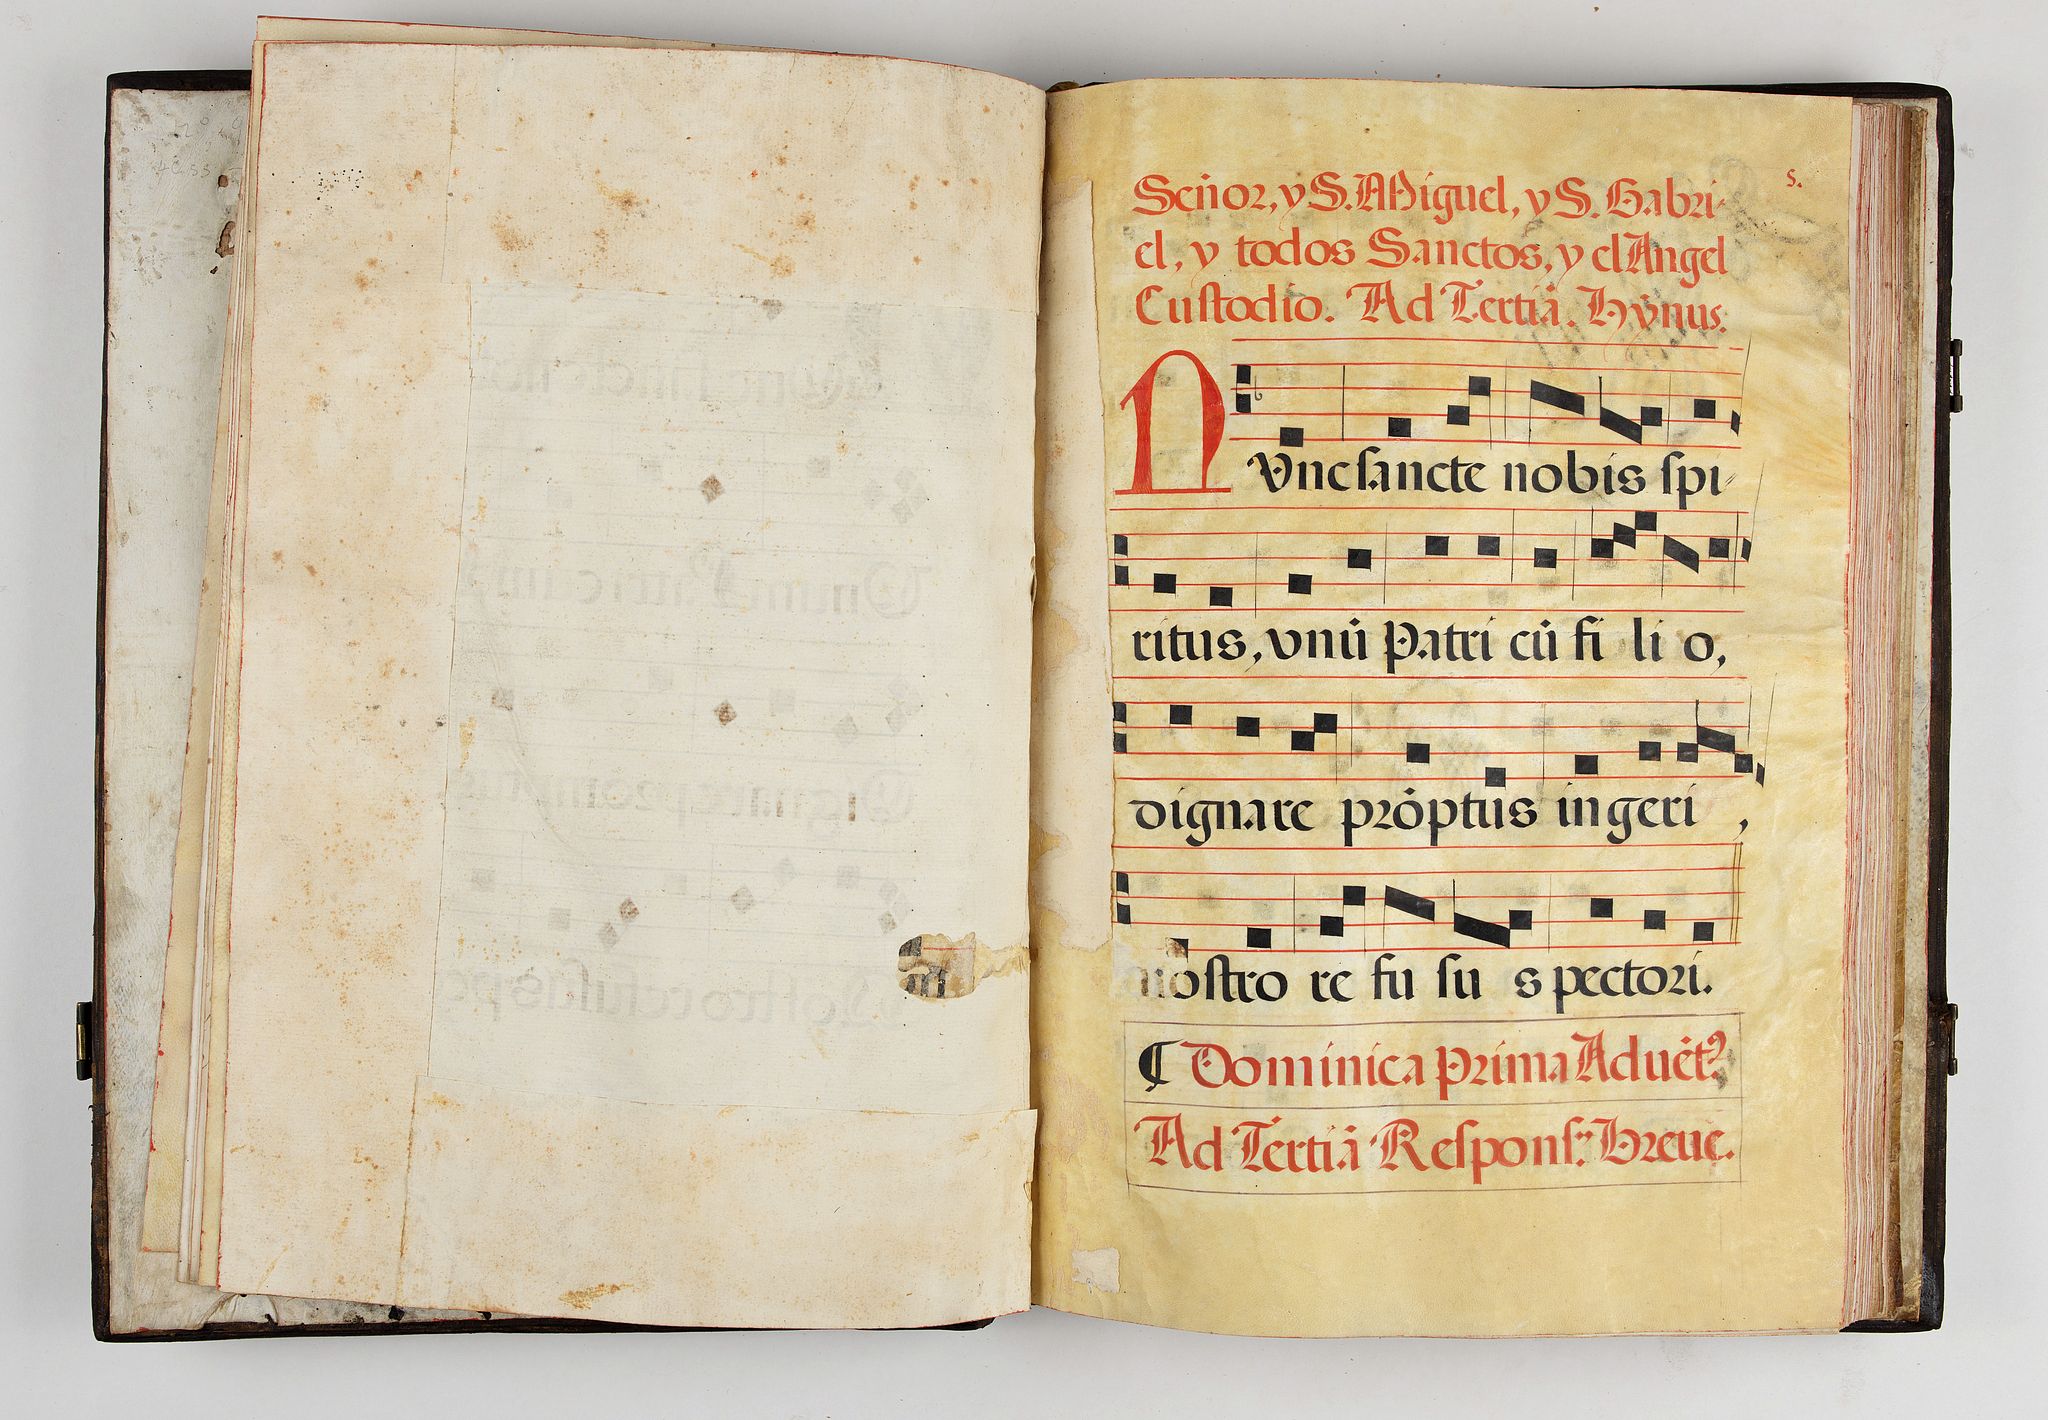 s.
Señor, y S. Miguel, y S. Gabri-
el, y todos Sanctos, y el Angel
Custodio. Ad Tertiā. Hỹnus.
NVnc sancte nobis spi-
ritus, vnū Patri cū fi li o,
dignare prōptus in geri ,
nostro re fu su s pectori.
¶ Dominica prima Aduēt⁹
Ad Tertiā Respons.ᵐ breue.